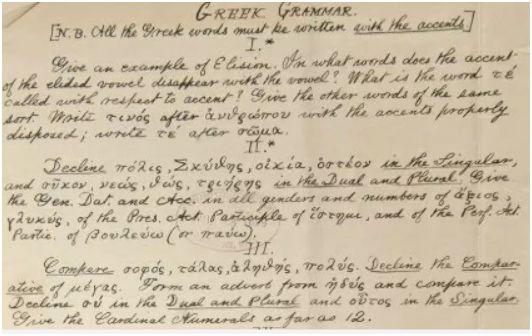 GREEK GRAMMAR.
[N.B. All the Greek words must be written with the accents]
I.*
Give an example of Elision. In what words does the accent
of the elided vowel disappear with the vowel? What is the word τέ
called with respect to accent? Give the other words of the same
sort. Write τινός after ἀνθρώπου with the accents properly
disposed; write τέ after σῶμα.
II.*
Decline πόλις, Σκύθης, οἰκία, ὀστέον in the Singular,
and σῦκον, νεώς, θώς, τριήρης in the Dual and Plural. Give
the Gen. Dat. and Acc. in all genders and numbers of ἄξιος,
γλυκύς, of the Pres. Act. Participle of ἵστημι, and of the Perf. Act.
Partic. of βουλεύω (or παύω).
III.
Compare σοφός, τάλας, ἀληθής, πολύς. Decline the Compar-
ative of μέγας. Form an adverb from ἡδύς and compare it.
Decline σύ in the Dual and Plural and οὗτος in the Singular.
Give the Cardinal Numerals as far as 12.